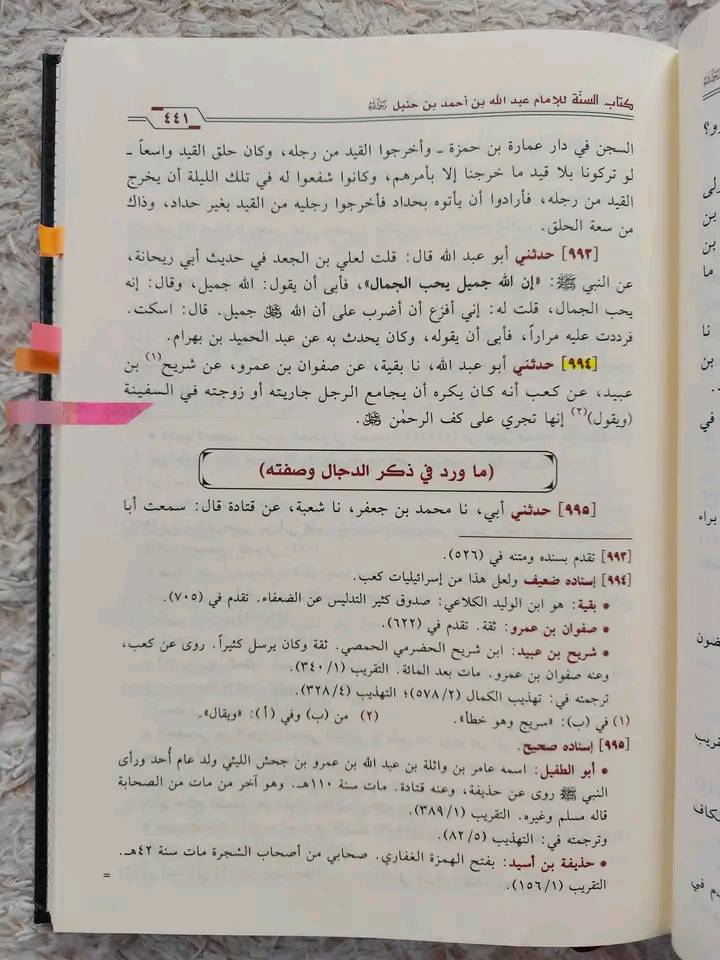 كتاب السنّة للإمام عبد الله بن أحمد بن حنبل
٤٤١
السجن في دار عمارة بن حمزة ـ وأخرجوا القيد من رجله، وكان حلق القيد واسعاً ـ
لو تركونا بلا قيد ما خرجنا إلا بأمرهم، وكانوا شفعوا له في تلك الليلة أن يخرج
القيد من رجله، فأرادوا أن يأتوه بحداد فأخرجوا رجليه من القيد بغير حداد، وذاك
من سعة الحلق.
[٩٩٣] حدثني أبو عبد الله قال: قلت لعلي بن الجعد في حديث أبي ريحانة،
عن النبي ﷺ: «إن الله جميل يحب الجمال»، فأبى أن يقول: الله جميل، وقال: إنه
يحب الجمال، قلت له: إني أفزع أن أضرب على أن الله ﷻ جميل. قال: اسكت.
فرددت عليه مراراً، فأبى أن يقوله، وكان يحدث به عن عبد الحميد بن بهرام.
[٩٩٤] حدثني أبو عبد الله، نا بقية، عن صفوان بن عمرو، عن شريح(١) بن
عبيد، عن كعب أنه كان يكره أن يجامع الرجل جاريته أو زوجته في السفينة
(ويقول)(٢) إنها تجري على كف الرحمٰن ﷻ.
(ما ورد في ذكر الدجال وصفته)
[٩٩٥] حدثني أبي، نا محمد بن جعفر، نا شعبة، عن قتادة قال: سمعت أبا
[٩٩٣] تقدم بسنده ومتنه في (٥٢٦).
[٩٩٤] إسناده ضعيف ولعل هذا من إسرائيليات كعب.
* بقية: هو ابن الوليد الكلاعي: صدوق كثير التدليس عن الضعفاء. تقدم في (٧٠٥).
* صفوان بن عمرو: ثقة. تقدم في (٦٢٢).
* شريح بن عبيد: ابن شريح الحضرمي الحمصي. ثقة وكان يرسل كثيراً. روى عن كعب،
وعنه صفوان بن عمرو. مات بعد المائة. التقريب (٣٤٠/١).
ترجمته في: تهذيب الكمال (٥٧٨/٢)؛ التهذيب (٣٢٨/٤).
(١) في (ب): «سريج وهو خطأ». (٢) من (ب) وفي (أ): «ويقال».
[٩٩٥] إسناده صحيح.
* أبو الطفيل: اسمه عامر بن واثلة بن عبد الله بن عمرو بن جحش الليثي ولد عام أحد ورأى
النبي ﷺ روى عن حذيفة، وعنه قتادة. مات سنة ١١٠هـ. وهو آخر من مات من الصحابة
قاله مسلم وغيره. التقريب (٣٨٩/١).
وترجمته في: التهذيب (٨٢/٥).
* حذيفة بن أسيد: بفتح الهمزة الغفاري. صحابي من أصحاب الشجرة مات سنة ٤٢هـ.
التقريب (١٥٦/١). =